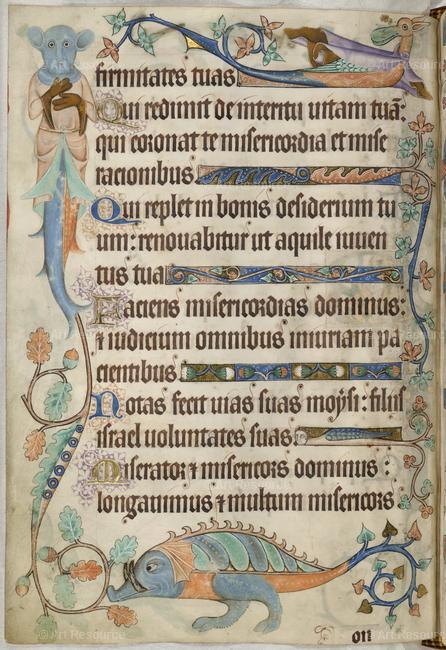 firmitates tuas.
Qui redimit de interitu uitam tuā:
qui coronat te misericordia et mise
racionibus.
Qui replet in bonis desiderium tu
um: renouabitur ut aquile iuuen
tus tua.
Faciens misericordias dominus:
⁊ iudicium omnibus iniuriam pa
cientibus.
Notas fecit uias suas moẏsi: filiis
israel uoluntates suas.
Miserator ⁊ misericors dominus:
longanimus ⁊ multum misericors
on
© Art Resource
Art Resource